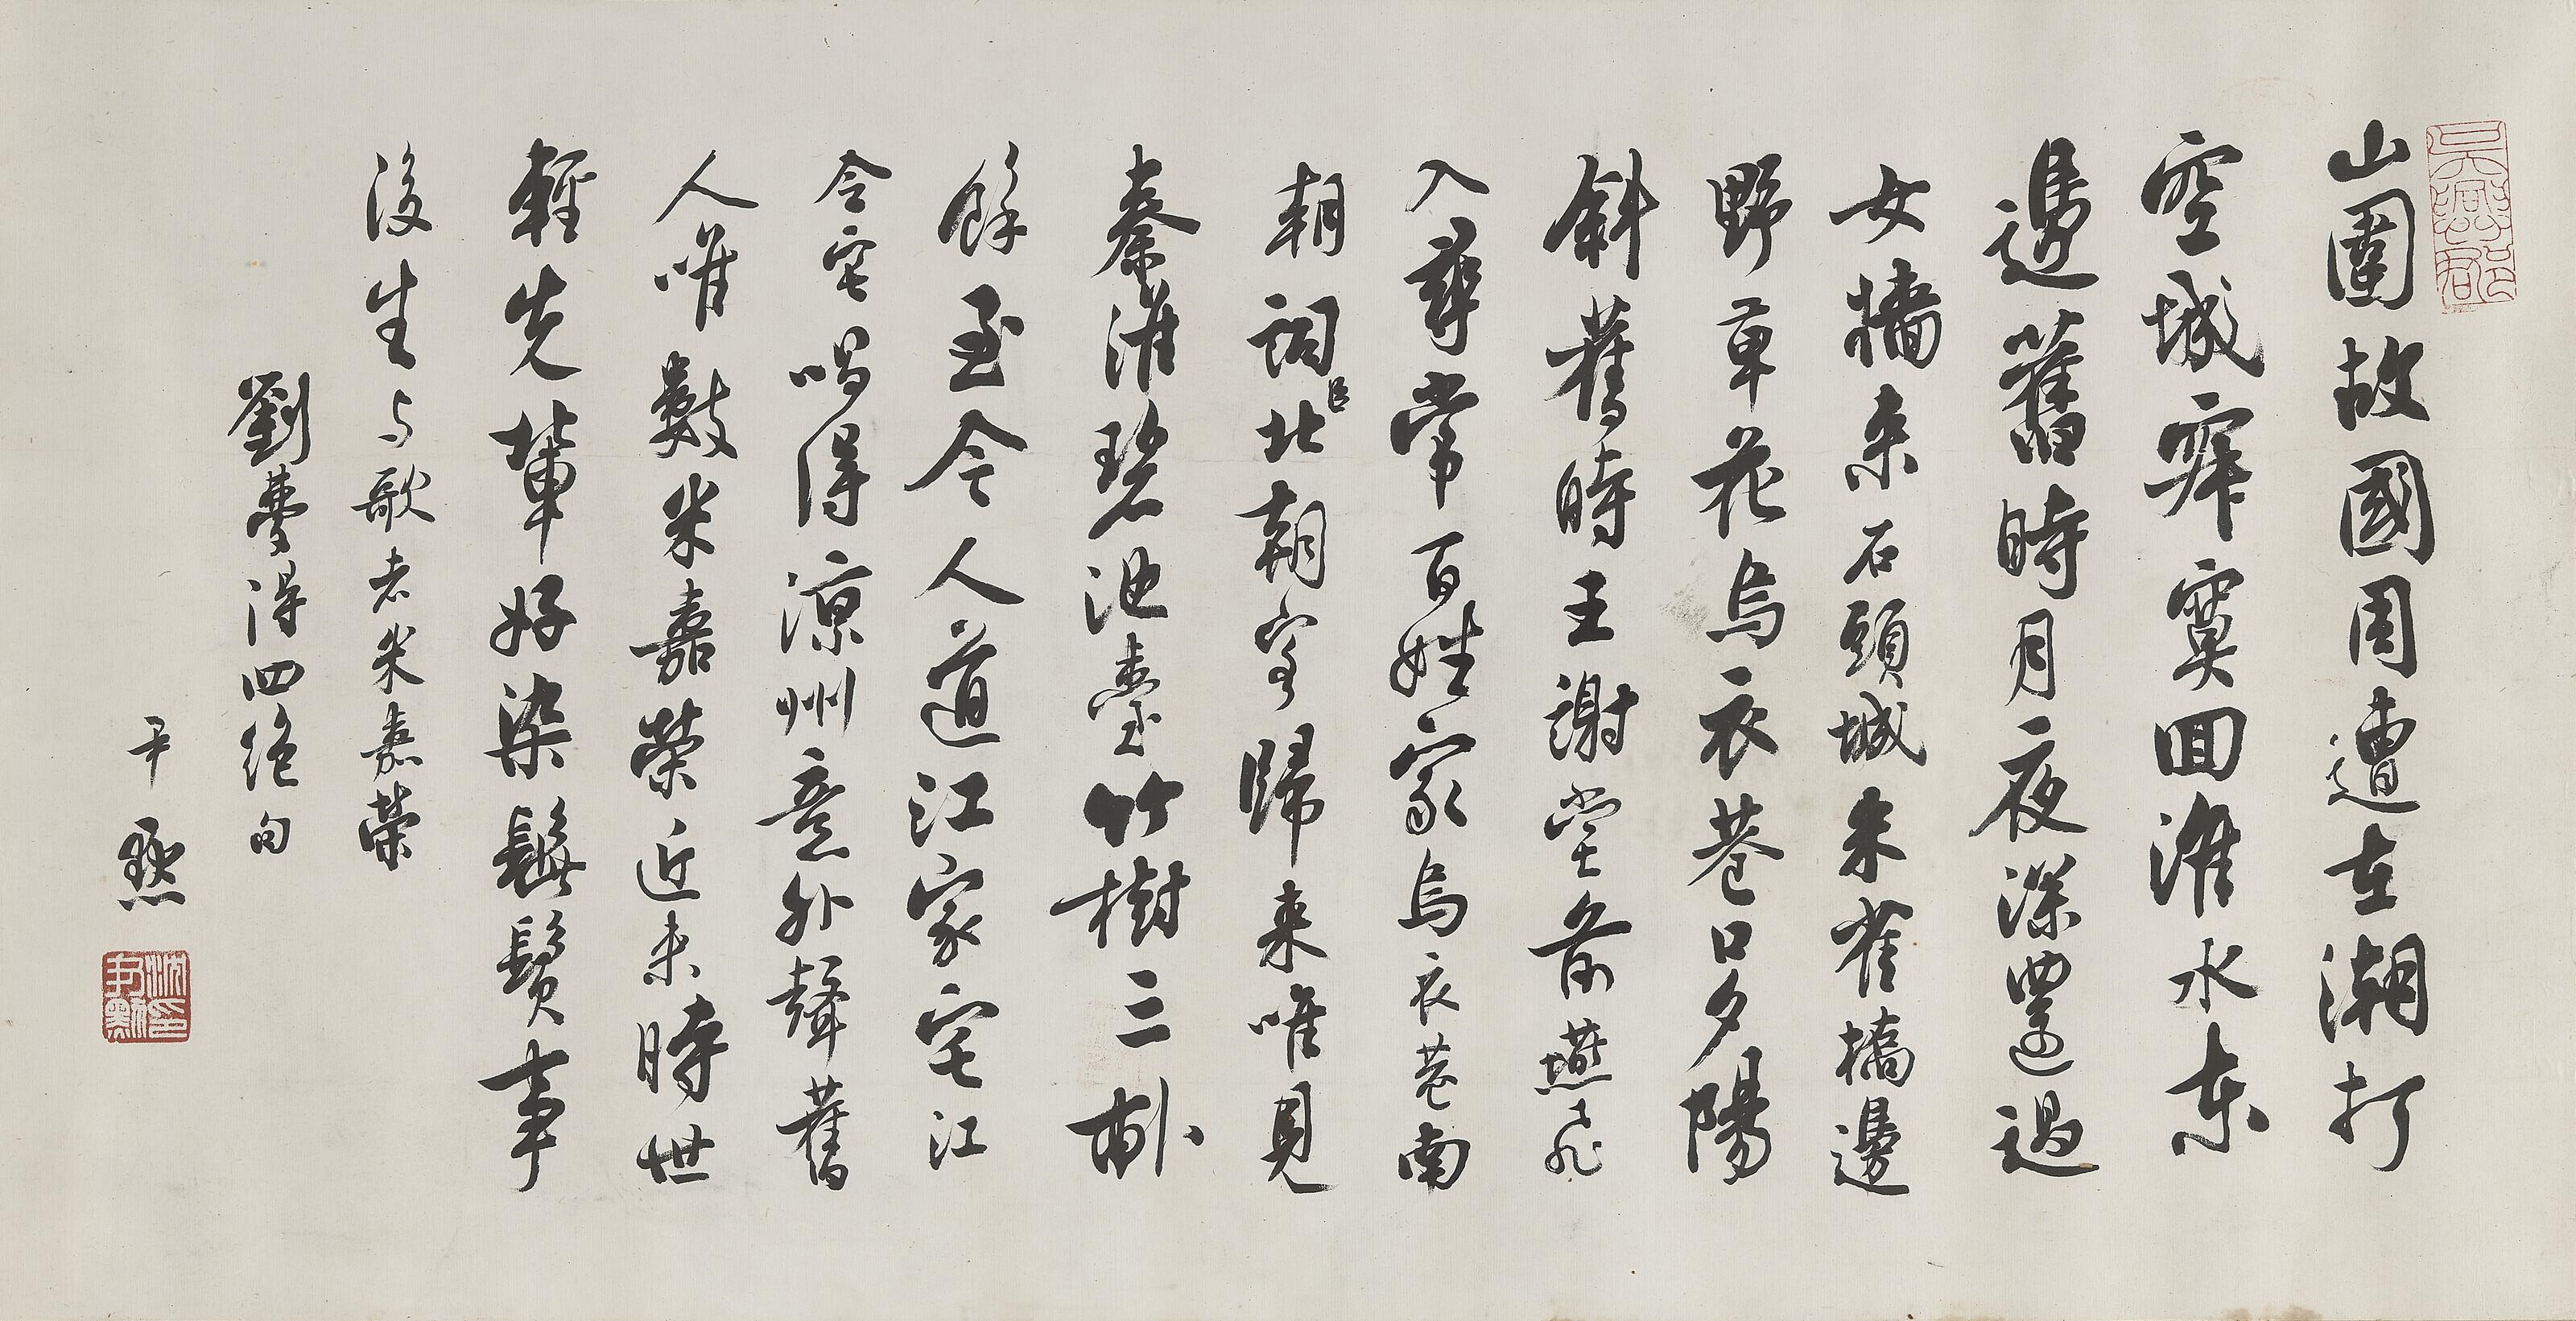 山圍故國周遭在潮打
空城寂寞回淮水東
邊舊時月夜深還過
女牆来石頭城朱雀橋邊
野草花烏衣巷口夕陽
斜舊時王謝堂前燕飛
入尋常百姓家烏衣巷南
朝詞臣北朝客歸来唯見
秦淮碧池臺竹樹三畝
餘至今人道江家宅江
令宅唱得涼州意外聲舊
人唯數米嘉榮近来時世
輕先輩好染髭鬚事
後生与歌者米嘉榮
劉夢得四絕句
尹默
沈尹默印